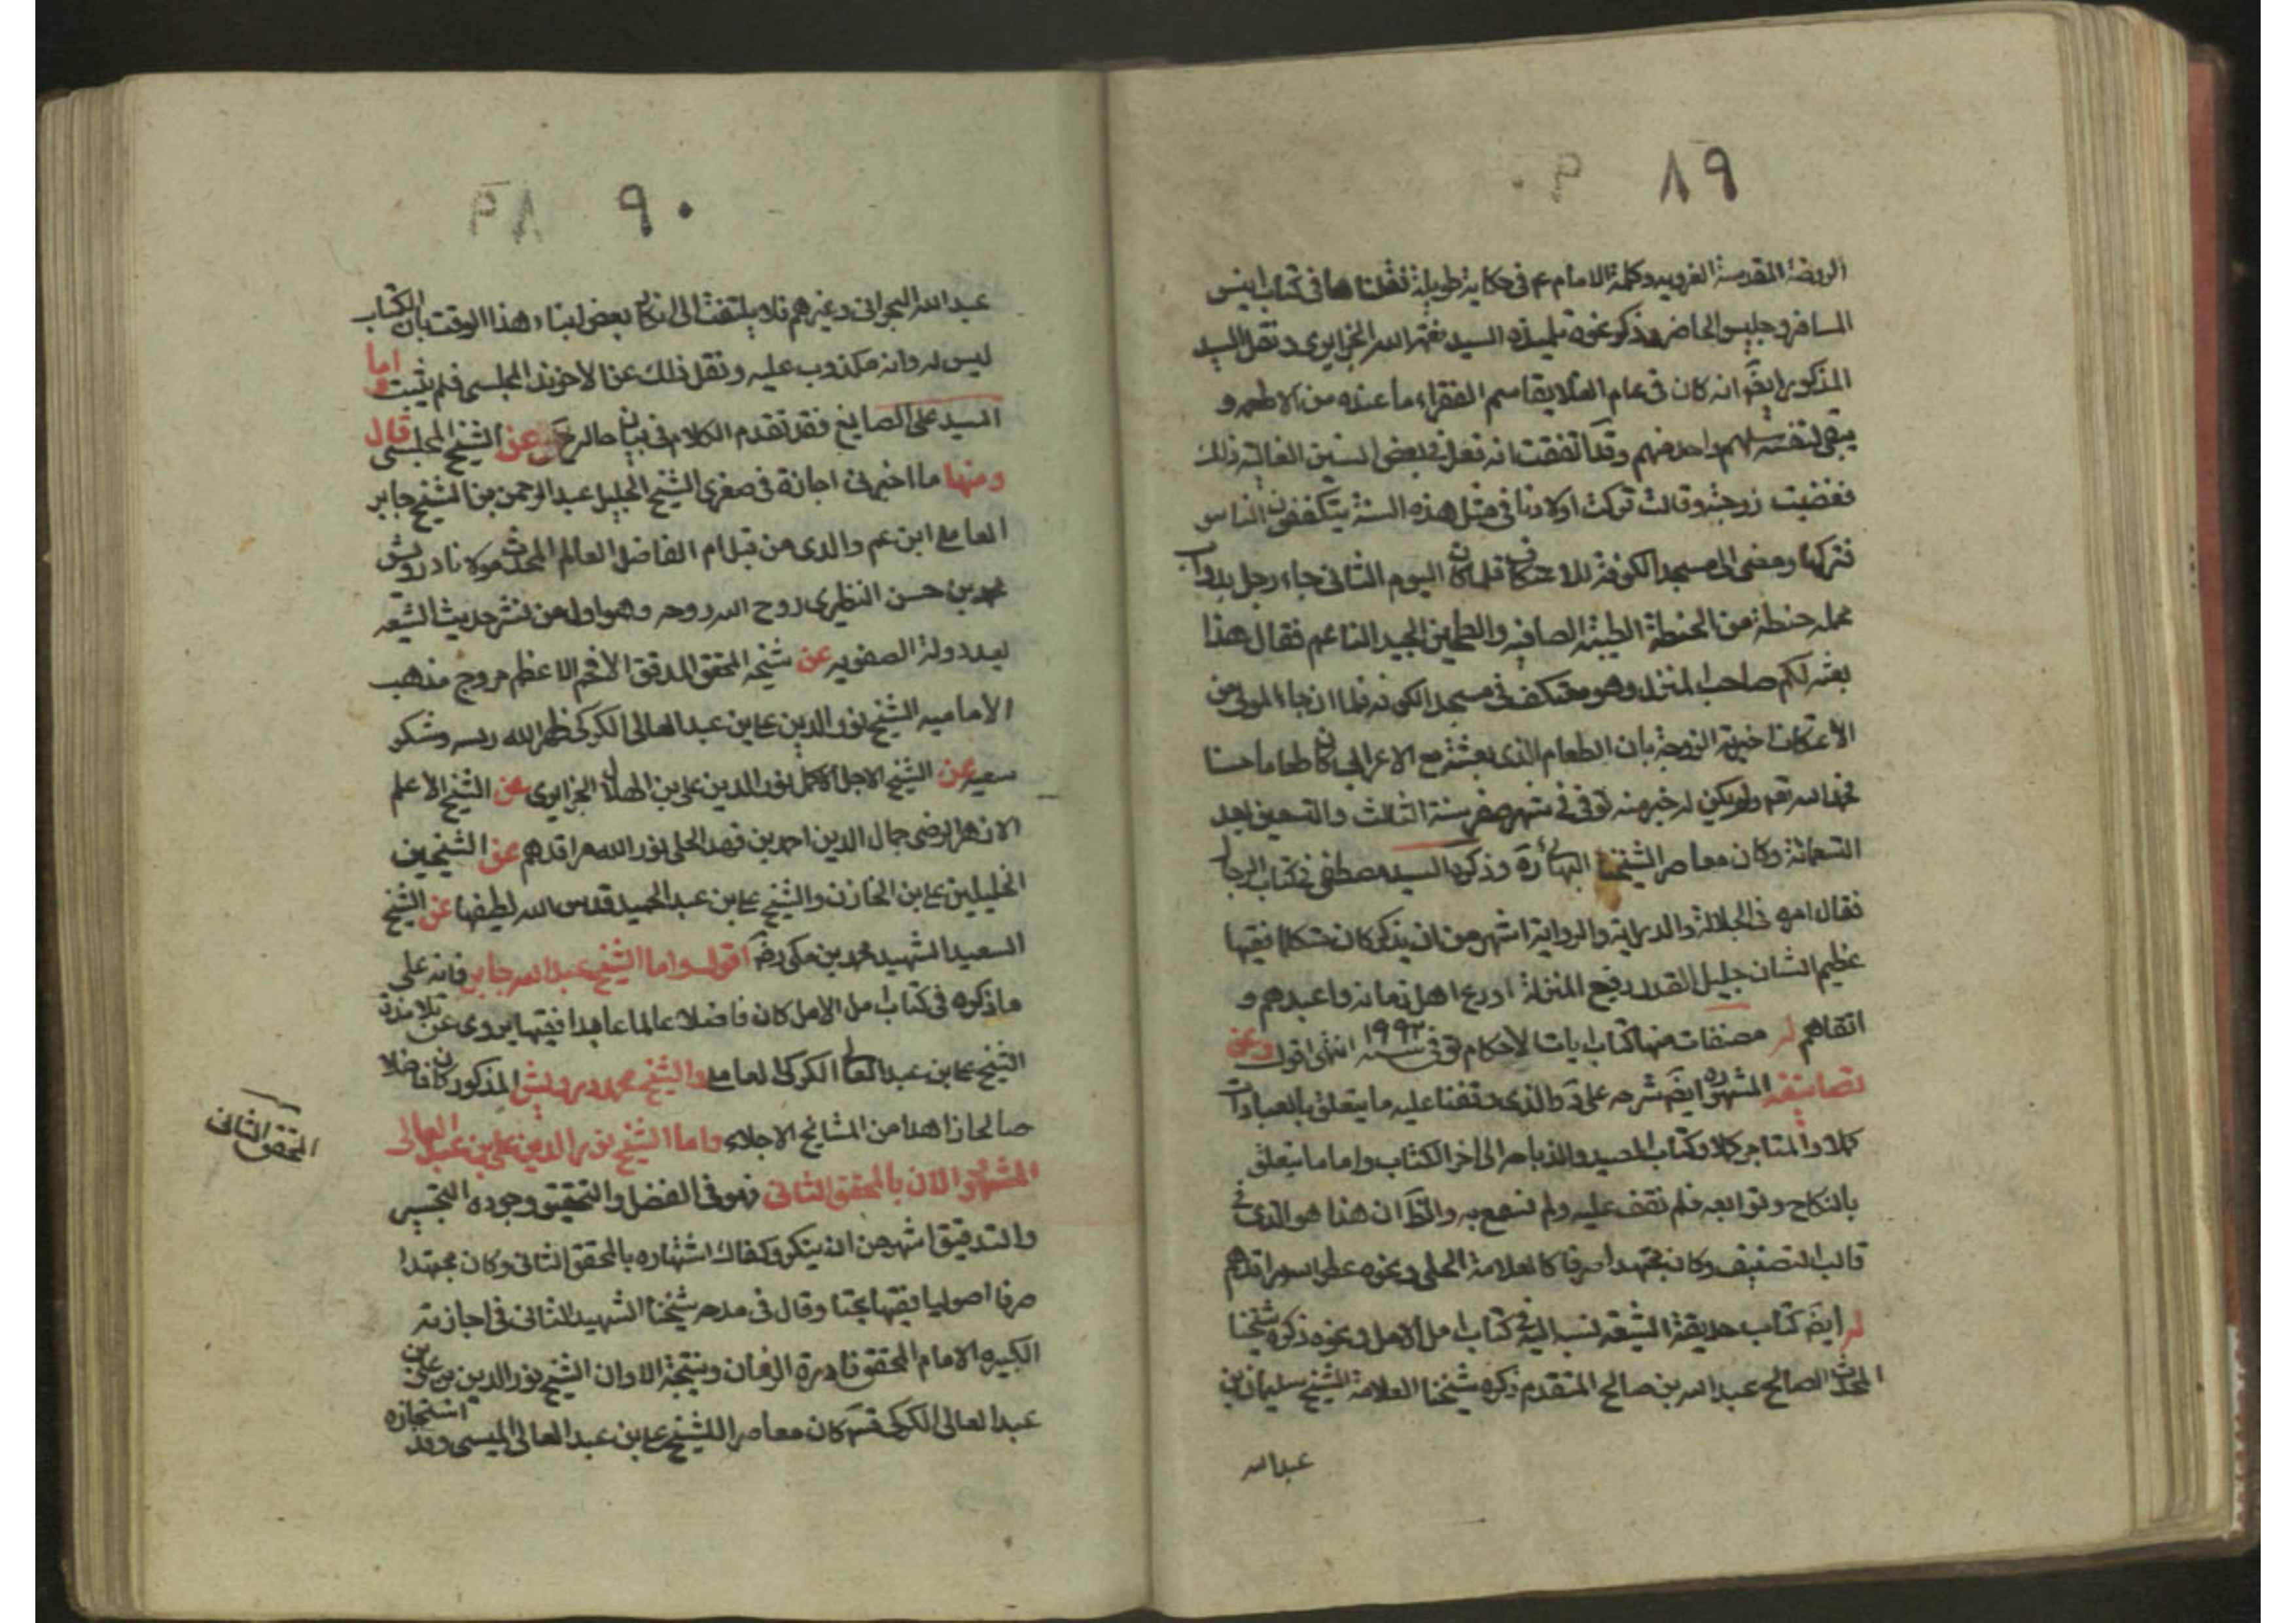 ٨٩
الروضة المقدسة الغرويه وكلمة الامام عم فى حكاية طويلة نقلناها فى كتاب انيس
المسافر وجليس الحاضر وذكر نحوه تلميذه السيد نعمة الله الجزايرى ونقل السيد
المذكور ايضا انه كان فى عام الغلا يقاسم الفقراء ما عنده من الاطعمه و
يبقى لنفسه سهم واحد منهم وقد اتفقت انه فعل فى بعض السنين الغاليه ذلك
فغضبت زوجته وقالت تركت اولادنا فى مثل هذه السنة يتكففون الناس
فتركها ومضى الى مسجد الكوفة للاعتكاف فلما كان اليوم الثانى جاء رجل بدواب
محمله حنطة من الحنطة الطيبة الصافيه والطحين الجيد الناعم فقال هذا
بعثه لكم صاحب المنزل وهو معتكف فى مسجد الكوفه فلما ان جاء المولى من
الاعتكاف اخبرته الزوجة بان الطعام الذى بعثته مع الاعرابى كان طعاما حسنا
فحمد الله تعم ولم يكن له خبر منه توفى فى شهر صفر سنة الثالث والتسعين بعد
التسعمائة وكان معاصر الشيخنا البهائى ره وذكره السيد مصطفى فى كتاب الرجال
فقال امره فى الجلالة والدراية والرواية اشهر من ان يذكر كان متكلما فقيها
عظيم الشان جليل القدر رفيع المنزلة اورع اهل زمانه واعبدهم و
اتقاهم له مصنفات منها كتاب ايات الاحكام توفى سنه ١٩٩٣ انتهى اقول وعن
تصانيفه المشهوره ايضا شرحه على د والذى وقفنا عليه ما يتعلق بالعبادات
كملا والمتاجر كلا وكتاب الصيد والذباحه الى اخر الكتاب واما ما يتعلق
بالنكاح وتوابعه فلم نقف عليه ولم نسمع به والظ ان هذا هو الذى خ
قالب التصنيف وكان مجتهدا صرفا كالعلامة الحلى ونحوه عطر الله مراقدهم
له ايضا كتاب حديقة الشيعه نسبه اليه فى كتاب امل الامل ونحوه ذكره شيخنا
المحدث الصالح عبد الله بن صالح المتقدم ذكره شيخنا العلامة الشيخ سليمان بن
عبد الله
٩٠
عبد الله البحرانى وغيرهم فلا يلتفت الى انكار بعض ابناء هذا الوقت بان الكتاب
ليس له وانه مكذوب عليه ونقل ذلك عن الاخوند المجلسى فلم يثبت واما
السيد على الصايغ فقد تقدم الكلام فى بيان حاله عن الشيخ المجلسى قال
ومنها ما اخبرنى اجازة فى صغرى الشيخ الجليل عبد الرحمن بن الشيخ جابر
العاملى ابن عم والدى من قبل ام الفاضل العالم المحدث مولانا درويش
محمد بن حسن النطنزى روح الله روحه وهو اول من نشر حديث الشيعه
بعد دولة الصفويه عن شيخه المحقق المدقق الافخم الاعظم مروج مذهب
الاماميه الشيخ نور الدين على بن عبد العالى الكركى طهر الله رمسه وشكر
سعيه عن الشيخ الاجل الاكمل نور الدين على بن الهلال الجزايرى عن الشيخ الاعلم
الازهر الرضى جمال الدين احمد بن فهد الحلى نور الله مراقدهم عن الشيخين
الجليلين على بن الخازن والشيخ على بن عبد الحميد قدس الله لطيفها عن الشيخ
السعيد الشهيد محمد بن مكى رضه اقول واما الشيخ عبد الله جابر فانه على
ما ذكره فى كتاب امل الامل كان فاضلا عالما عابدا فقيها يروى عن تلامذة
الشيخ على بن عبد العالى الكركى العاملى والشيخ محمد درويش المذكور كان فاضلا
صالحا زاهدا من المشايخ الاجلاء واما الشيخ نور الدين على بن عبد العالى
المشهور الان بالمحقق الثانى فهو فى الفضل والتحقيق وجوده التحبير
والتدقيق اشهر من ان ينكر وكفاك اشتهاره بالمحقق الثانى وكان مجتهدا
صرفا اصوليا فقيها بحتا وقال فى مدحه شيخنا الشهيد الثانى فى اجازته
الكبيره الامام المحقق نادرة الزمان ونتيجة الاوان الشيخ نور الدين بن على بن
عبد العالى الكركى قده كان معاصرا للشيخ على بن عبد العالى الميسى وقد استجازه
المحقق الثانى